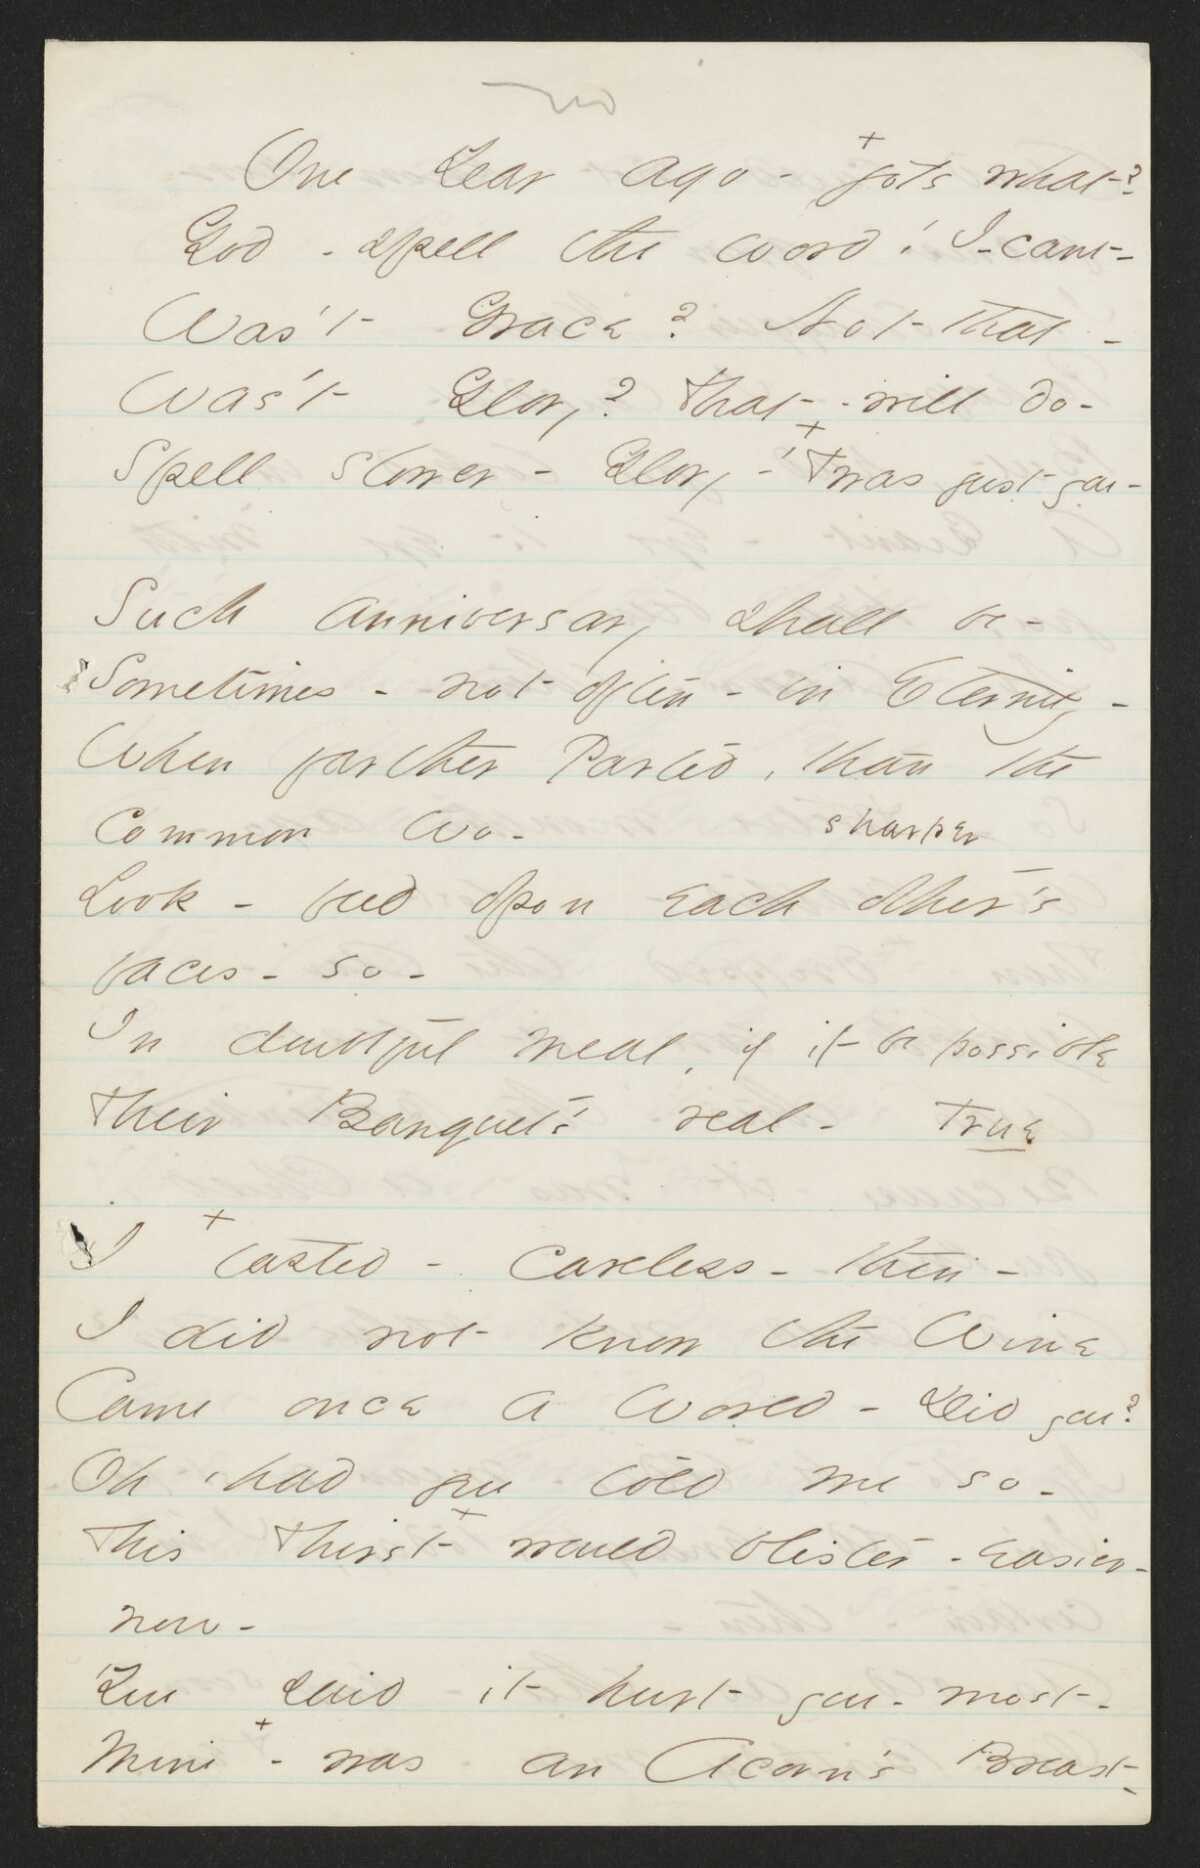 no
One Year ago - + jots what?
God - spell the word! I - cant -
Was't Grace? Not that -
Was't Glory? That - will do -
Spell slower - Glory - + 'Twas just you -
Such anniversary shall be -
Sometimes - not often - in Eternity -
When farther Parted, than the
Common Wo -
sharper
Look - feed opon each other's
faces - so -
In doubtful meal, if it be possible
Their Banquet's real - True
I + tasted - careless - then -
I did not know the Wine
Came once a World - Did you?
Oh, had you told me so -
This Thirst + would blister - easier -
now -
You said it hurt you - most -
Mine + - was an Acorn's Breast -